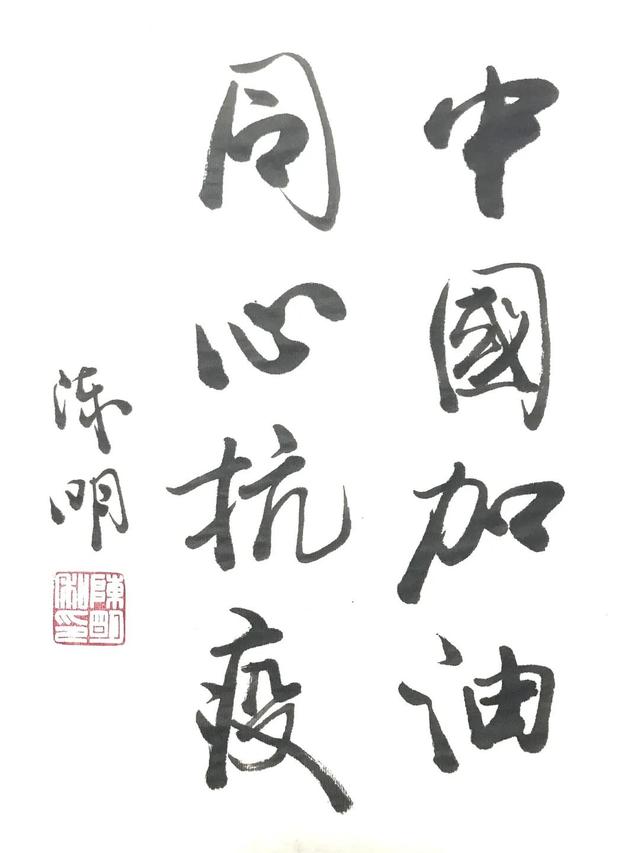 中國加油
同心抗疫
陈明
陳明